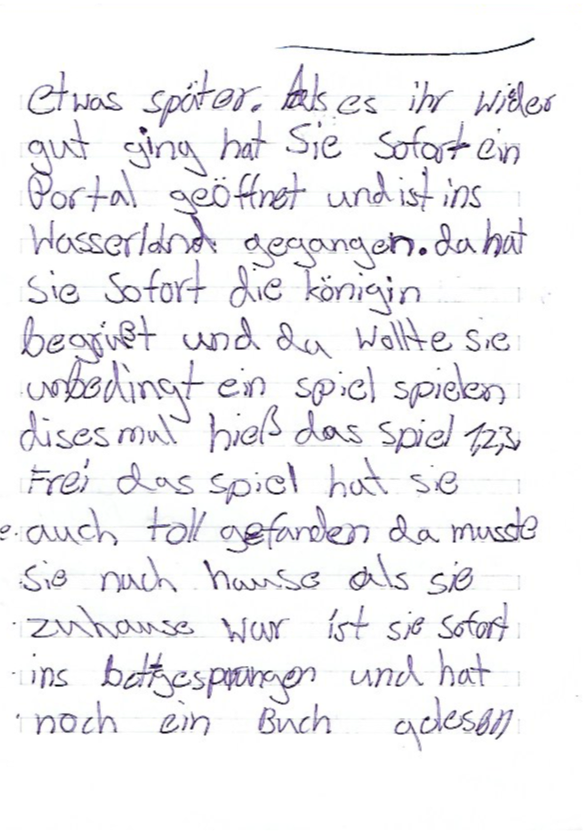 etwas später. Als es ihr wider
gut ging hat Sie Sofort ein
Portal geöffnet und ist ins
Wasserland gegangen. da hat
Sie Sofort die königin
begrüßt und da wollte sie
unbedingt ein spiel spielen
dises mal hieß das spiel 1,2,3,
Frei das spiel hat sie
auch toll gefanden da musste
sie nach hause als sie
zuhause war ist sie sofort
ins bett gesprungen und hat
noch ein Buch gelesen